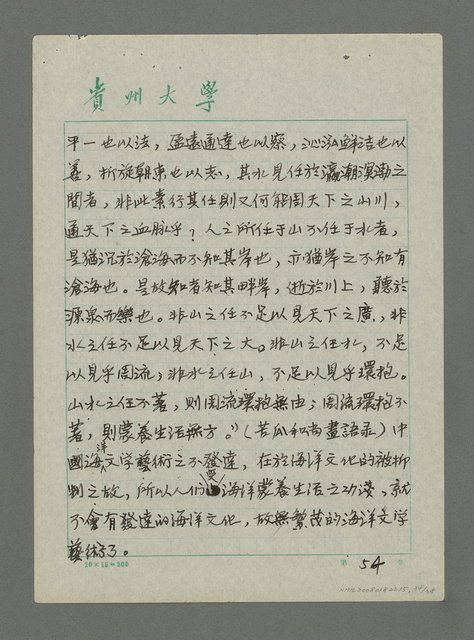 貴州大學
平一也以法，盈遠通達也以察，沁泓鮮洁也以
善，折旋朝東也以志，其水見任於瀛潮溟渤之
間者，非此素行其任則又何能周天下之山川，
通天下之血脉乎？人之所任于山不任于水者，
是猶沉於滄海而不知其岸也，亦猶岸之不知有
滄海也。是故知者知其畔岸，逝於川上，聽於
源泉而樂也。非山之任不足以見天下之廣，非
水之任不足以見天下之大。非山之任水，不足
以見乎周流；非水之任山，不足以見乎環抱。
山水之任不著，則周流環抱無由；周流環抱不
著，則蒙養生活無方。”（苦瓜和尚畫語录）中
國海洋文学藝術之不發達，在於海洋文化的被抑
制之故，所以人们受海洋蒙養生活之功淺，就
不會有發達的海洋文化，故無繁茂的海洋文学
藝術了。
20×15=300
第 54
NMTL20080182215, 54/58